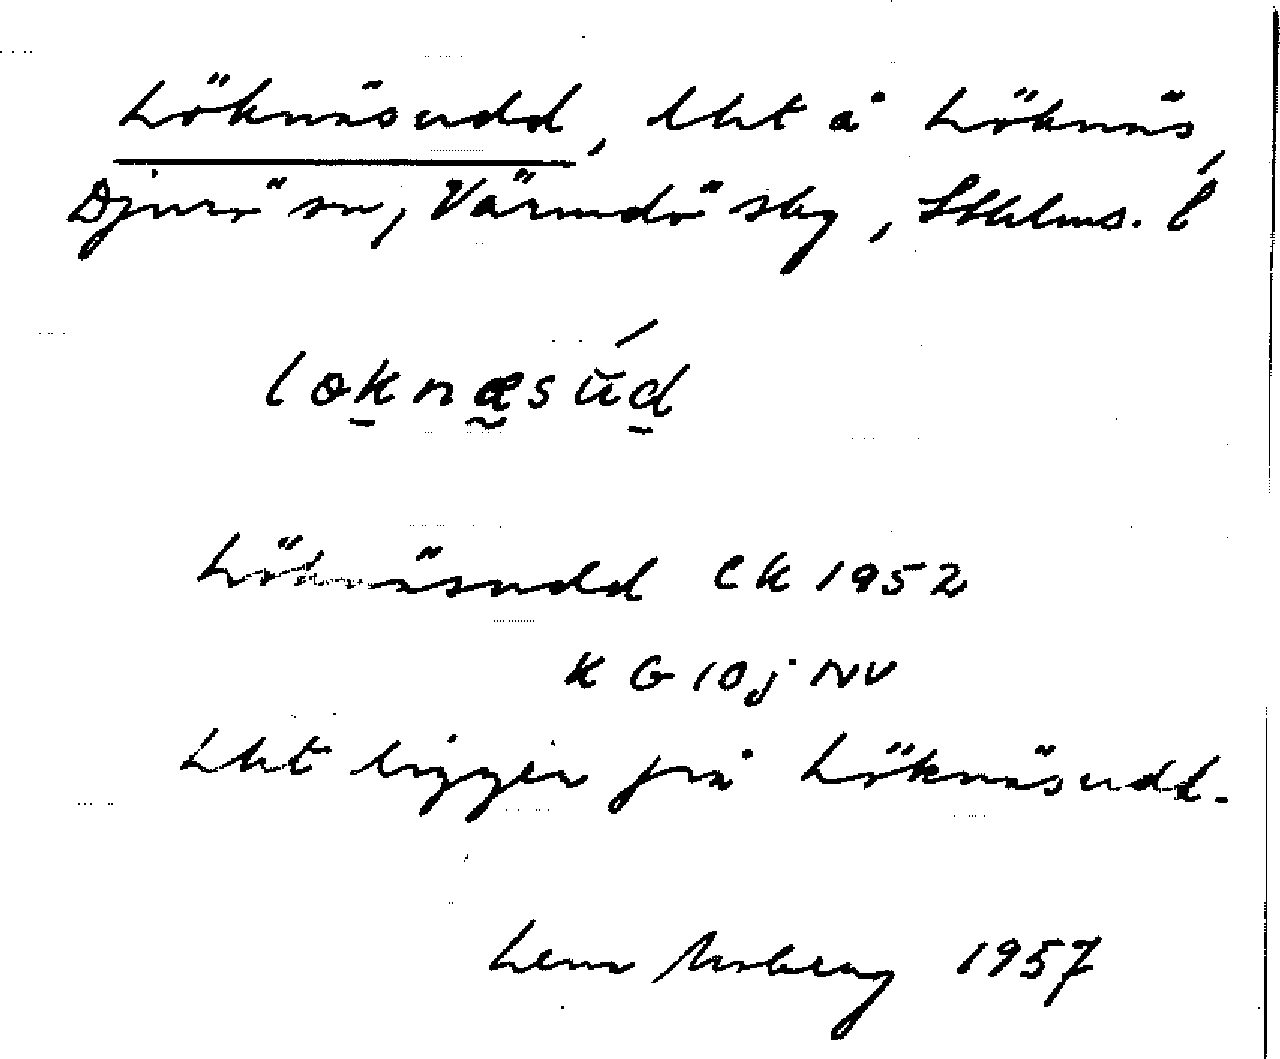 Löknäsudd, lht å Löknäs,
Djurö sn, Värmdö skg, Sthlms. l
løknæsŭ́d
Löknäsudd EK 1952
K G 10j NV
Lht ligger på Löknäsudd.
Lena Moberg 1957